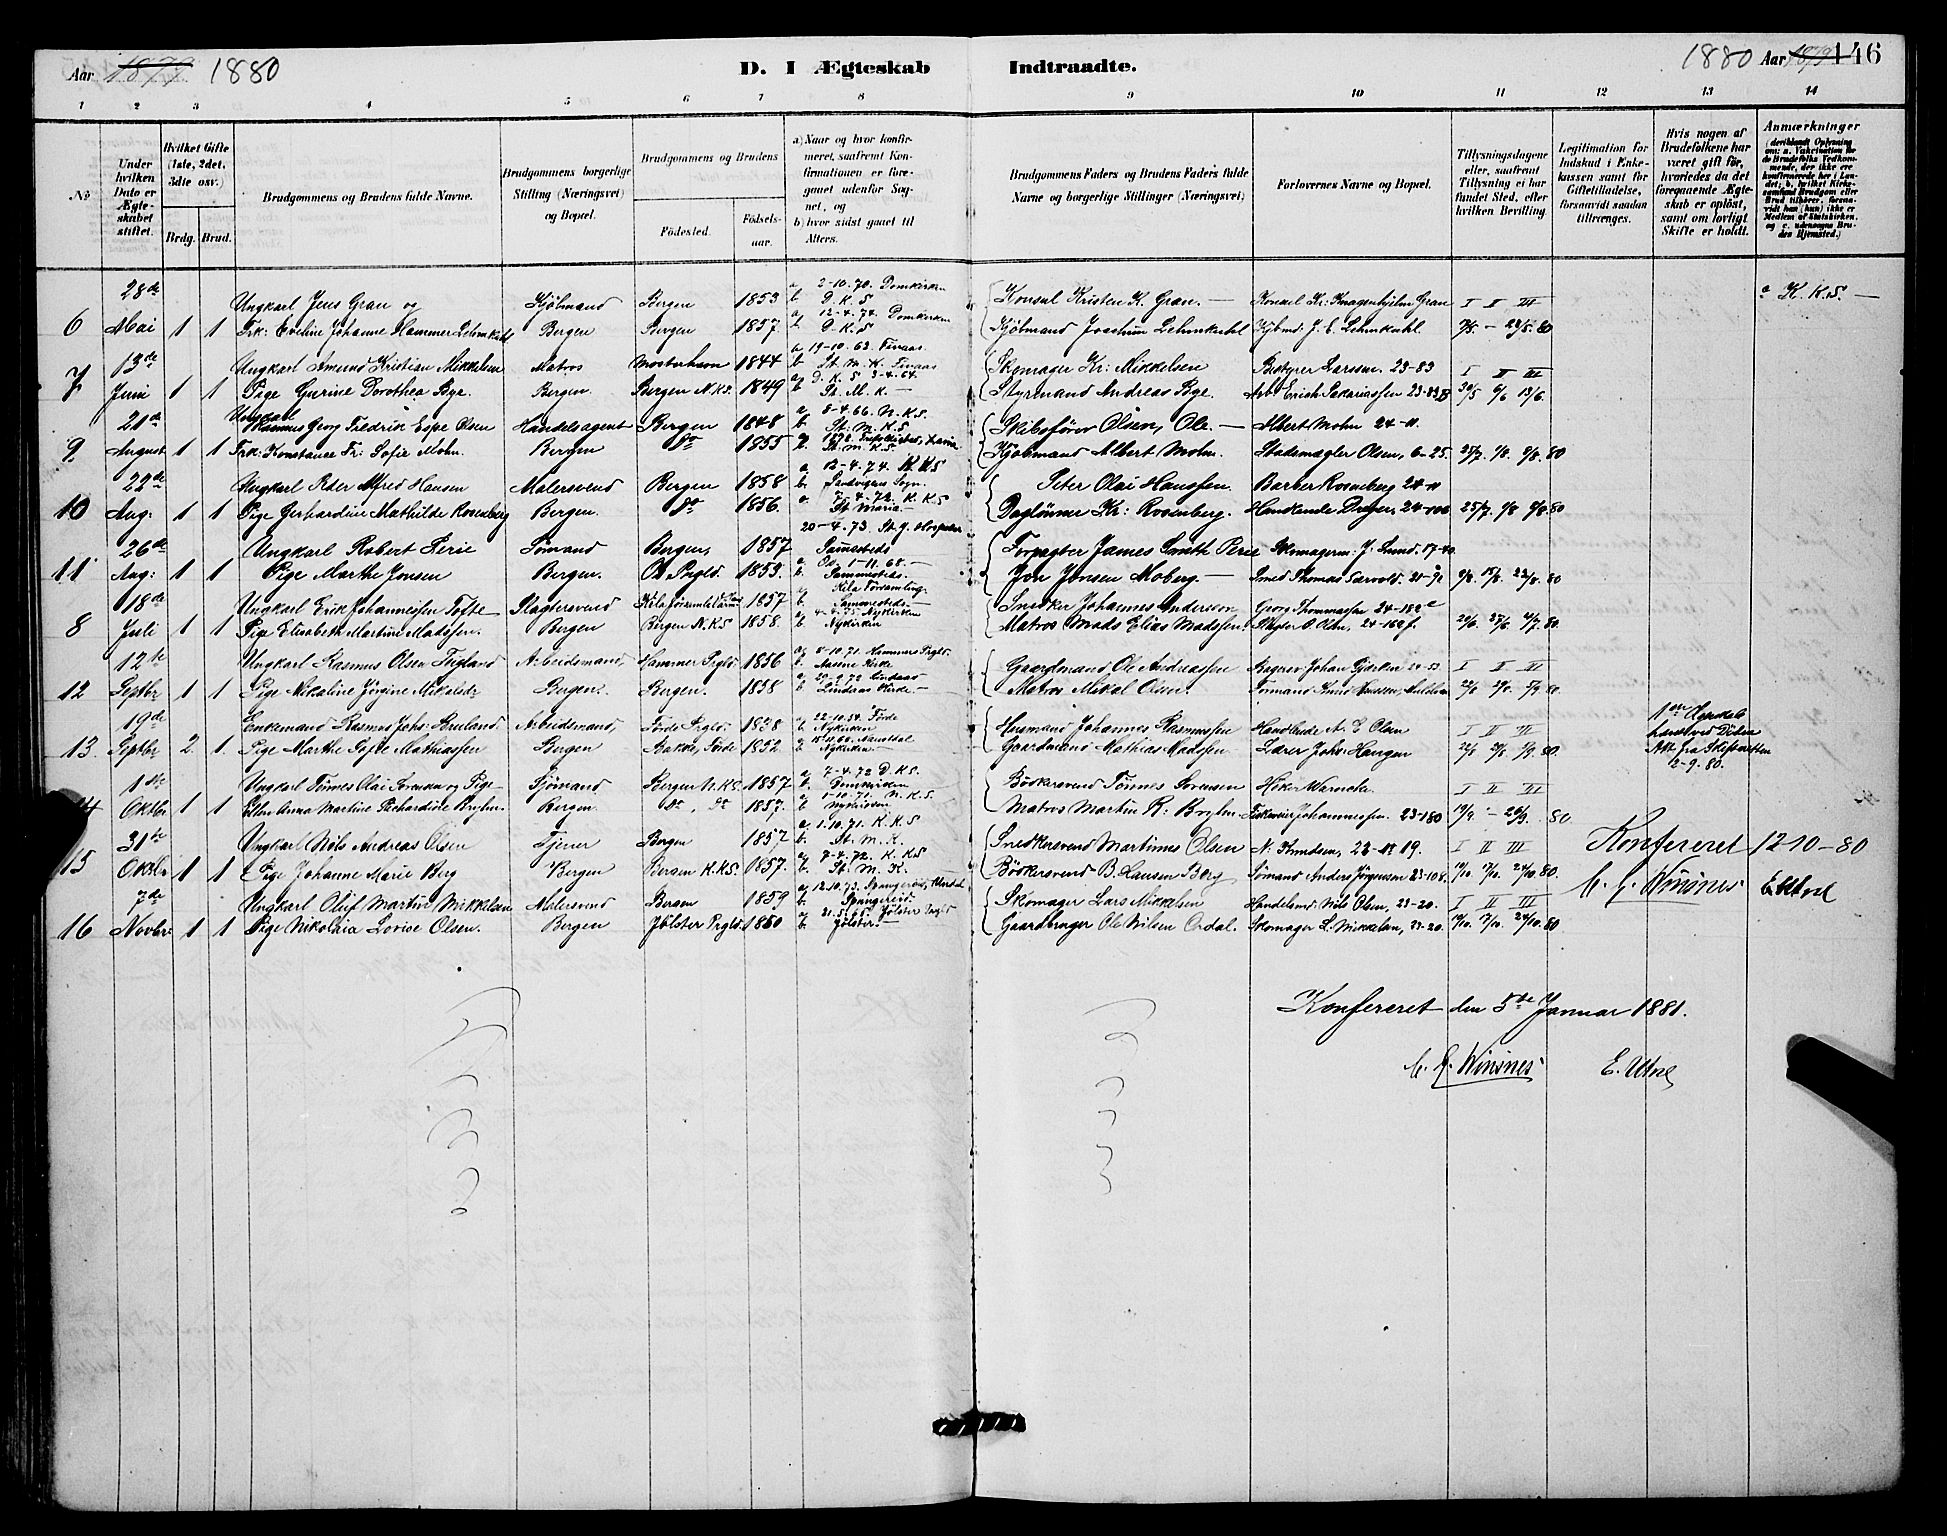 Aar 1879 1880
D. I Ægteskab Indtraadte.
1880 Aar 1879 146
1 2 3 4 5 6 7 8 9 10 11 12 13 14
No
Under hvilken Dato er Ægteskabet stiftet.
Hvilket Gifte (1ste, 2det, 3die osv.)
Brdg. Brud.
Brudgommens og Brudens fulde Navne.
Brudgommens borgerlige Stilling (Næringsvei) og Bopæl.
Brudgommens og Brudens
Fødested. Fødselsaar.
a) Naar og hvor konfirmeret, saafremt Konfirmationen er foregaaet udenfor Sognet, og
b) hvor sidst gaaet til Alters.
Brudgommens Faders og Brudens Faders fulde Navne og borgerlige Stillinger (Næringsvei)
Forlovernes Navne og Bopæl.
Tillysningsdagene eller, saafremt Tillysning ei har fundet Sted, efter hvilken Bevilling.
Legitimation for Indskud i Enkekassen samt for Giftetilladelse, forsaavidt saadan tiltrænges.
Hvis nogen af Brudefolkene har været gift før, hvorledes da det foregaaende Ægteskab er opløst, samt om lovligt Skifte er holdt.
Anmærkninger
28de Ungkarl Jens Gran og Kjøbmand Bergen 1853 a 2-10.70. Domkirken b D.K.S Konsul Kristen K. Gran. — Konsul Kr: Knagenhjelm Gran I II III a K.K.S. —
6 Mai 1 1 Frk: Eveline Johanne Hammer Lehmkuhl Bergen Bergen 1857. a 12-4.74. Domkirken b D.K.S Kjøbmand Joachim Lehmkuhl Kjbmd: J. C. Lehmkuhl. 7/5 — 23/5. 80
13de Ungkarl Amund Kristian Mikkelsen Matros Mosterhavn 1844 a 19-10.62. Finaas b St. M. K. Finaas Skomager Kr: Mikkelsen Bestyrer Larssen. 23-83 I II III
7 Juni 1 1 Pige Gurine Dorothea Bye. Bergen. Bergen N.K.S. 1849 a D.K.S 3-4.64. b St. M. K. — Styrmand Andreas Bye. Arb. Erich Sakariassen 23-83 30/5 6/6 13/6
21de Ungkarl Rasmus Georg Fredrik Espe Olsen Handelsagent Bergen 1848 a 8-4.66. N.K.S. b St. M.K.S Skibsfører Olsen, Ole. — Albert Mohn 24-11
9 August 1 1 Frk: Konstance Fr: Sofie Mohn. Bergen Do 1855 b St. M.K.S Kjøbmand Albert Mohn. Stadsmægler Olsen, 6-25. 25/7. 1/8. 8/8. 80
22de Ungkarl Peder Alfred Hansen Malersvend Bergen 1858 a 12-4.74. K.K.S b. Sandvigens Sogn. Peter Olai Hanssen. Barber Rosenberg 24-11
10 Aug: 1 1 Pige Gerhardine Mathilde Rosenberg Bergen. Do 1856. a 7-4.72. K.K.S St Maria — Daglønner Kr: Rosenberg. Handlende Dreyer, 24-100 25/7 1/8 8/8 80
26de Ungkarl Robert Perie Sømand Bergen, 1857 20-4.73. St. J. Hospital Sammesteds Forpagter James Smith Perie Skomagerm: J. Lund. 17-40
11 Aug: 1 1 Pige Marthe Jonsen Bergen. Os Prgld. 1853. a Os, 1-11.68. — b. Sammesteds. — Jon Jonsen Moberg. — Smed Thomas Særvold. 8/8. 15/8. 22/8. 80
18de Ungkarl Erik Johannessen Tofte Slagtersvend 1857 Sammesteds — Snedker Johannes Andersson Georg Thommassen 24-182
8 Juli 1 1 Pige Elisabeth Martine Madssen. Bergen Bergen N.K.S 1858. Nykirken Matros Mads Elias Madssen. Slagter O. Olsen, 24-160 f. 20/6. 27/6. 4/7. 80.
12te Ungkarl Rasmus Olsen Arbeidsmand, Hammer Prgld. 1856 a 8-10.71. Hammers Prgld. Gaardmand Ole Andreassen I II III
12 Septbr 1 1 Pige Nikoline Jørgine Mikalsdr Bergen. Bergen. 1858 Lindaas Kirke — Matros Mikal Olsen. 22/8 29/8. 5/9 80.
19de Enkemand Rasmus Johs: Bruland. Arbeidsmand, Førde Prgld. 1838 a 22-10.54. Førde b. Nykirken Husmand Johannes Rasmussen Handlende A. E. Olsen I II III
13. Septbr 2. 1. Pige Marthe Sofie Mathiassen Bergen Førde 1852 Nykirken — Gaardmand Mathias Madssen Lærer Johs: Haugen 22/8 29/8. 5/9. 80.
Akt fra Skifteretten 2-9.80.
1ste Ungkarl Tønnes Olai Sørensen og Pige Sjømand Bergen N.K.S. 1857 a 7-4.72 D.K.S. b. Domkirken Bødkersvend Tønnes Sørensen Høker Warncke. I II III
14 Oktbr 1 1 Ellen Anna Martine Richardine Bryhn. Bergen Do, Do 1857. a 1-10.71. N.K.S. b Nykirken Matros Martin R: Bryhn Johannessen. 23-180 19/9. — 26/9. 80
31te Ungkarl Nils Andreas Olsen Tjener Bergen 1857 a 1.10.71. K.K.S b. St. M. K. Snedkersvend Martinus Olsen N. Knudsen, 22-19. I II III Konfereret 12-10-80
15 Oktbr 1 1 Pige Johanne Marie Berg Bergen Bergen K.K.S. 1857. a 7-4.72. K.K.S b St. M. K. Bødkersvend B. Hansen Berg Sømand Anders Jørgensen 23-108. 10/10. 17/10. 24/10. 80. C. G. Winsnes E Utne
7de Ungkarl Oluf Martin Mikkelsen Malersvend Bergen 1859 a 12.10.73. Spangereid, Mandal b. Spangereid. Skomager Lars Mikkelsen Handelsmd. Nils Olsen, 23-20. I II III
16 Novbr 1 1 Pige Nikolaia Lovise Olsen. Bergen Jølster Prgld. 1850 a 21.5.65. Jølster Prgld b. Jølster. — Gaardbruger Ole Nilsen Ordal. Skomager L. Mikkelsen, 23-20. 10/10. 17/10. 24/10. 80
Konfereret den 5te Januar 1881.
C. G. Winsnes E. Utne